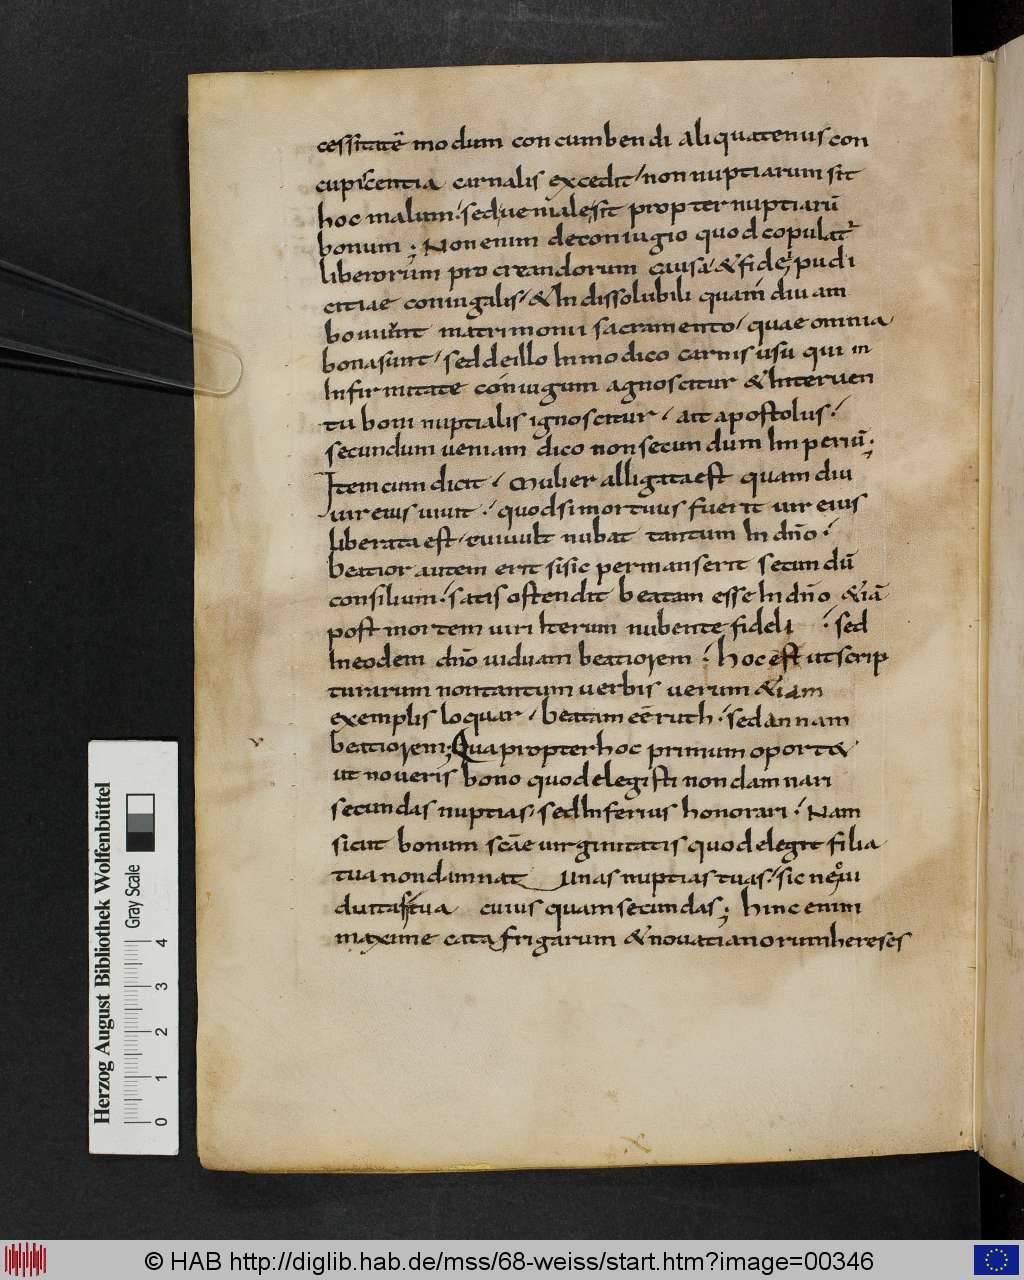 cessitatē modum concumbendi aliquatenus con
cupiscentia carnalis excedit non nuptiarum sit
hoc malum sed veniale sit propter nuptiarū
bonum; Non enim de coniugio quod copulat
liberorum procreandorum causa & fide pudi
citiae coniugalis & Indissolubili quam diu am
bo uiuunt matrimonii sacramento quae omnia
bona sunt sed de illo Inmodico carnis usu qui in
Infirmitate coniugum agnoscitur & Interuen
tu boni nuptialis ignoscitur ait apostolus
secundum ueniam dico non secundum Imperiū;
Item cum dicit Mulier alligata est quam diu
uir eius uiuit quod si mortuus fuerit uir eius
liberata est cui uult nubat tantum In dño
beatior autem erit si sic permanserit secundū
consilium satis ostendit beatam esse In dño &iā
post mortem uiri Iterum nubente fideli sed
In eodem dño uiduam beatiorem hoc est ut scrip
turarum non tantum uerbis uerum &iam
exemplis loquar beatam eē ruth sed annam
beatiorem; Quapropter hoc primum oport&
ut noueris bono quod elegisti non damnari
secundas nuptias sed Inferius honorari Nam
sicut bonum scāe uirginitatis quod elegit filia
tua non damnat unas nuptias tuas sic nec ui
duitas tua cuius quam secundas; hinc enim
maxime catafrigarum & nouatianorum hereses
Herzog August Bibliothek Wolfenbüttel
Gray Scale
0 1 2 3 4
© HAB http://diglib.hab.de/mss/68-weiss/start.htm?image=00346